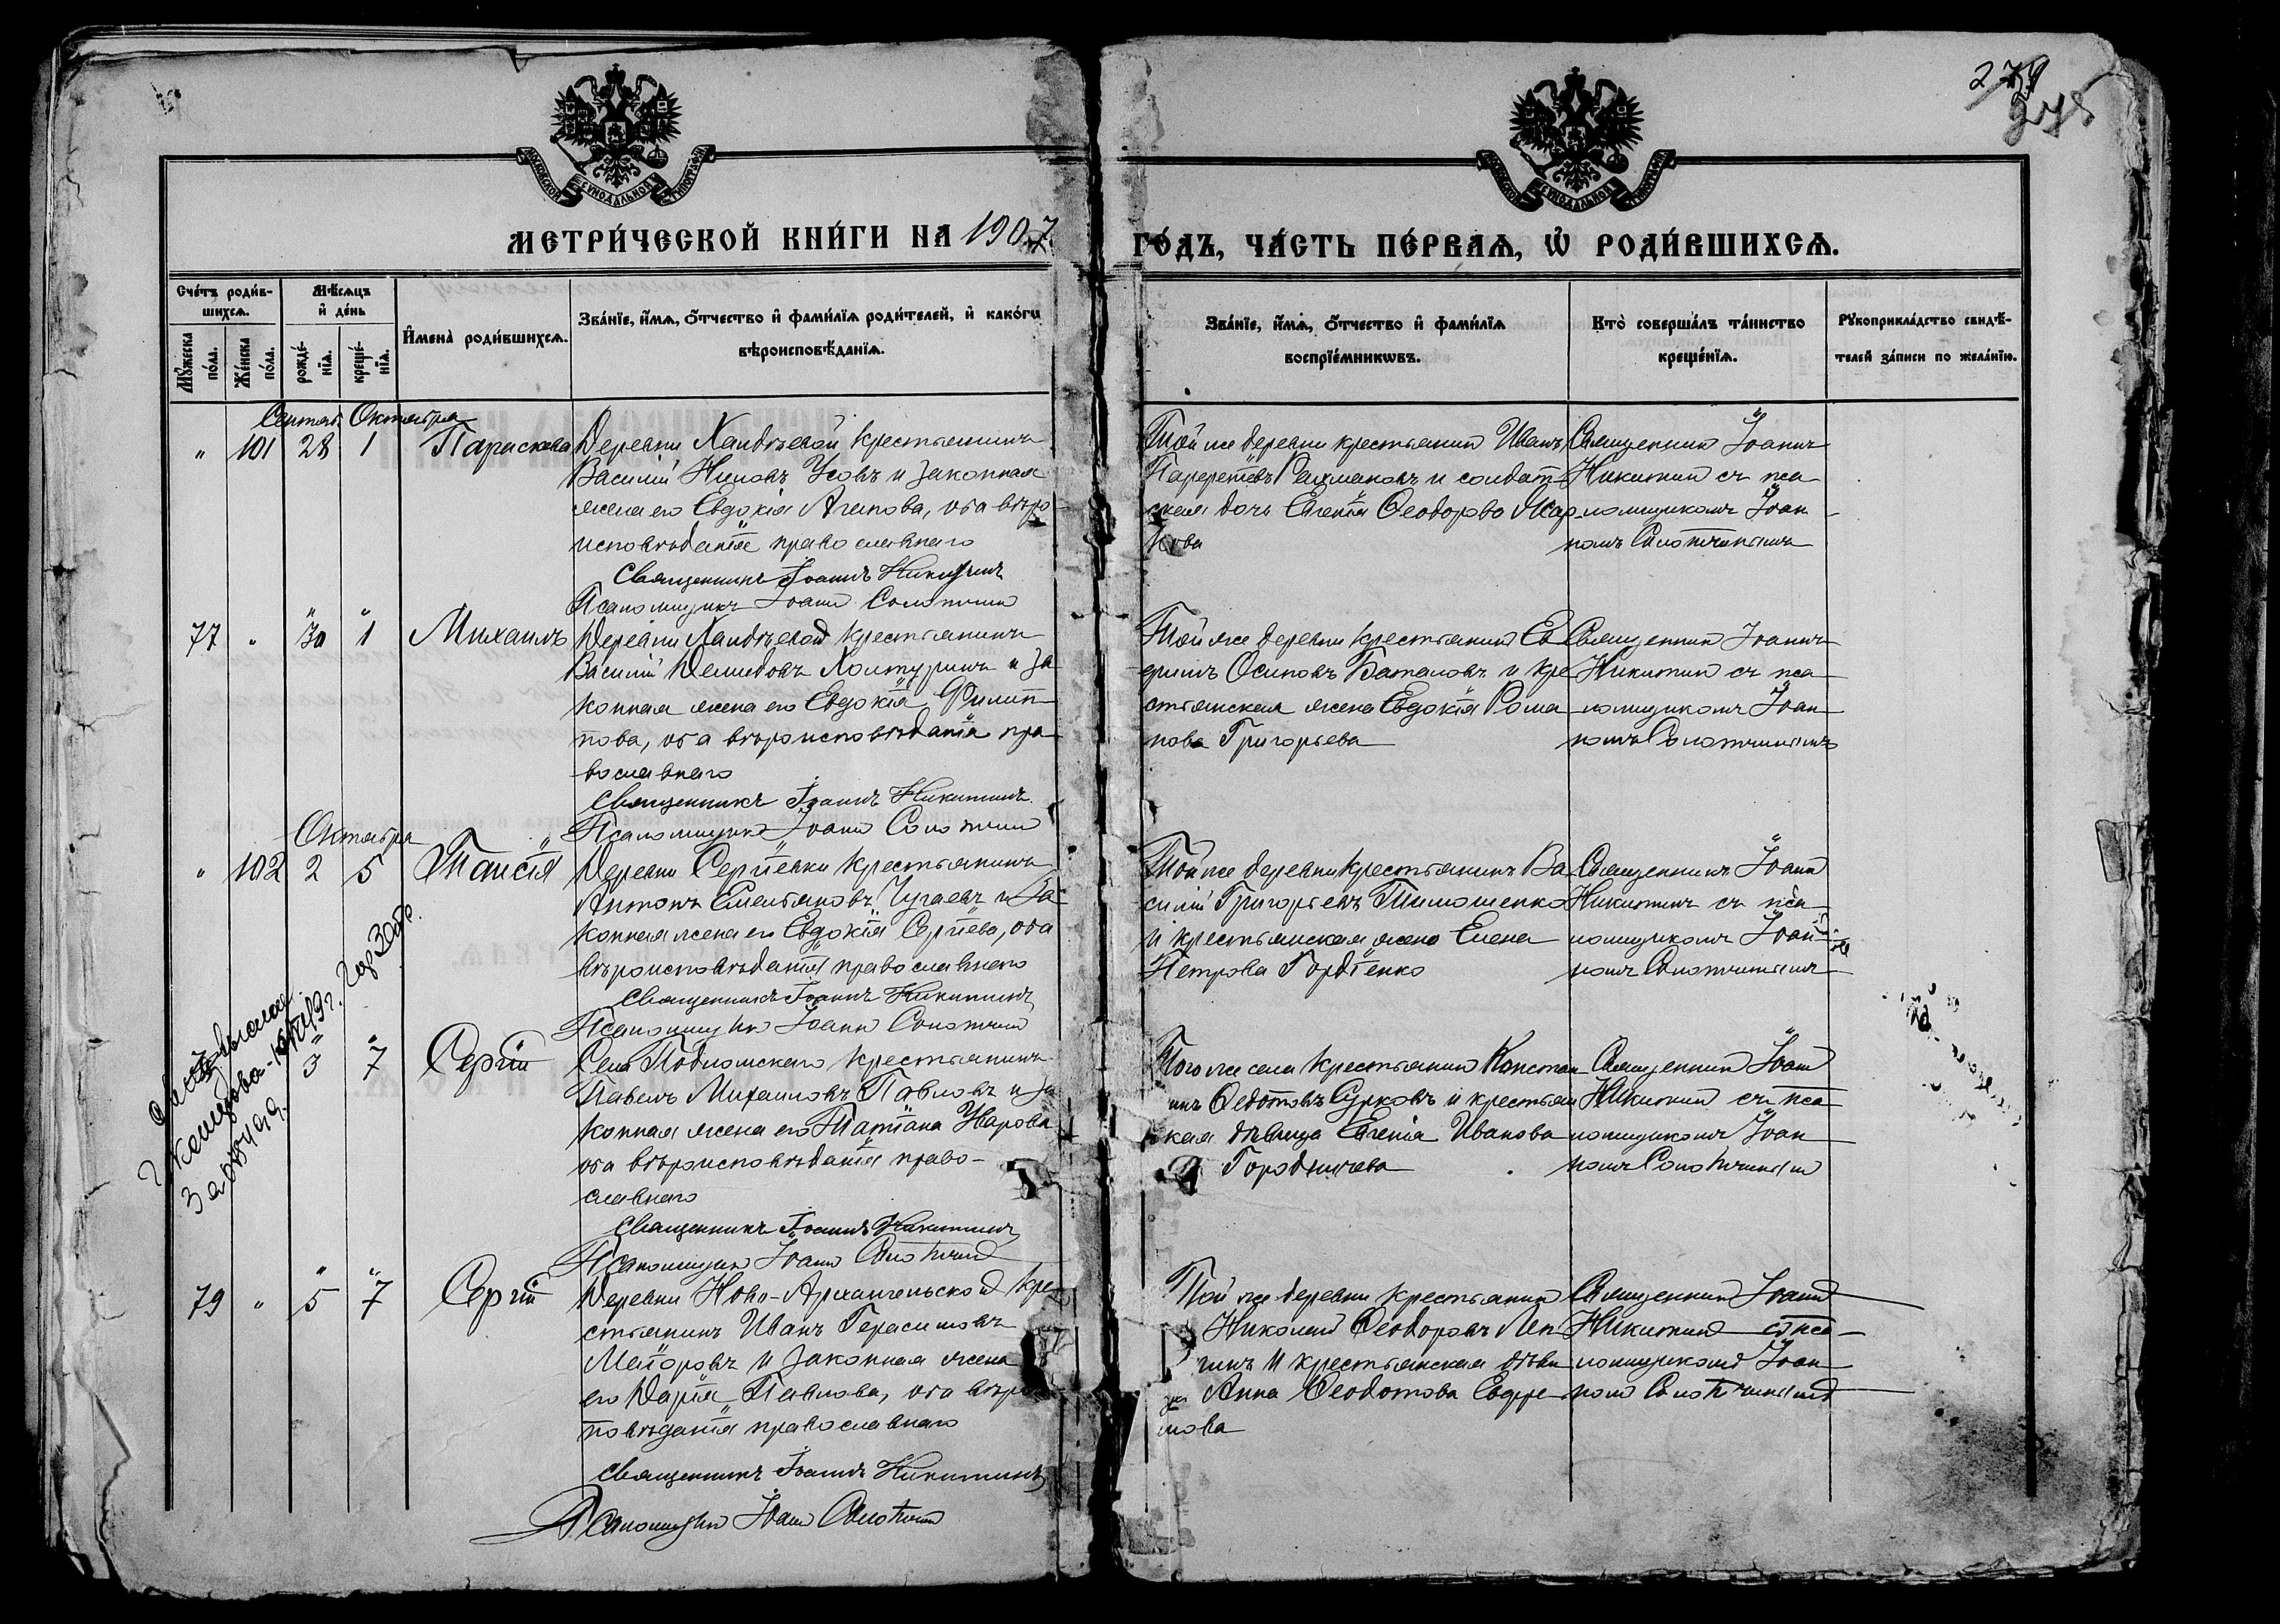 274
275
МОСКОВСКОЙ СѴНОДАЛЬНОЙ ТИПОГРАФІИ
МОСКОВСКОЙ СѴНОДАЛЬНОЙ ТИПОГРАФІИ
МЕТРИ́ЧЕСКОЙ КНИ́ГИ НА 1907
ГО́ДЪ, ЧА́СТЬ ПЕ́РВАѦ, Ѽ РОДИ́ВШИХСѦ.
Сче́тъ роди́в-
шихсѧ.
Мѣ́сѧцъ
и҆ де́нь
Му́жеска
по́ла.
Же́нска
по́ла.
рожде́-
нїѧ.
креще́-
нїѧ.
И҆мена̀ роди́вшихсѧ.
Зва́нїе, и҆́мѧ, ѻ҆́тчество и҆ фами́лїѧ роди́телей, и҆ како́гѡ
вѣроисповѣ́данїѧ.
Зва́нїе, и҆́мѧ, ѻ҆́тчество и҆ фами́лїѧ
воспрїе́мникѡвъ.
Кто̀ соверша́лъ та́инство
креще́нїѧ.
Рꙋкоприкла́дство свидѣ́-
телей за́писи по жела́нїю.
Сентяб. Октября
" 101 28 1 Параскева
Деревни Хандѣевой крестьянинъ
Василій Ниловъ Усовъ и законная
жена его Евдокія Агапова, оба вѣро-
исповѣданія православнаго
Священникъ Іоаннъ Никитинъ
Псаломщикъ Іоаннъ Солотчинъ
Той же деревни крестьянинъ Иванъ
Рахмановъ и солдат-
ская дочь Евгенія Ѳеодорова
Священникъ Іоаннъ
Никитинъ съ пса-
ломщикомъ Іоан-
номъ Солотчинымъ
77 " 30 1 Михаилъ
Деревни Хандѣевой крестьянинъ
Василій Демидовъ Холтуринъ и за-
конная жена его Евдокія Филип-
пова, оба вѣроисповѣданія пра-
вославнаго
Священникъ Іоаннъ Никитинъ
Псаломщикъ Іоаннъ Солотчинъ
Той же деревни крестьянинъ Ев-
фимъ Осиповъ Баталовъ и кре-
стьянская жена Евдокія Рома-
нова Григорьева
Священникъ Іоаннъ
Никитинъ съ пса-
ломщикомъ Іоан-
номъ Солотчинымъ
Октября
" 102 2 5 Таисія
Деревни Сергіевки крестьянинъ
Антонъ Емельяновъ Чугаевъ и за-
конная жена его Евдокія Сергіева, оба
вѣроисповѣданія православнаго
Священникъ Іоаннъ Никитинъ
Псаломщикъ Іоаннъ Солотчинъ
Той же деревни крестьянинъ Ва-
силій Григорьевъ Тимошенко
и крестьянская жена Елена
Петрова Гордіенко
Священникъ Іоаннъ
Никитинъ съ пса-
ломщикомъ Іоан-
номъ Солотчинымъ
3 7 Сергій
Села Подломскаго крестьянинъ
Павелъ Михаиловъ Павловъ и за-
конная жена его Татіана Уварова
оба вѣроисповѣданія право-
славнаго
Священникъ Іоаннъ Никитинъ
Псаломщикъ Іоаннъ Солотчинъ
Того же села крестьянинъ Констан-
инъ Ѳедотовъ Сурковъ и крестьян
ская дѣвица Евгенія Иванова
Городничева
Священникъ Іоаннъ
Никитинъ съ пса-
ломщикомъ Іоан-
номъ Солотчинымъ
79 " 5 7 Сергій
Деревни Ново-Архангельской кре-
стьянинъ Иванъ Герасимовъ
Маіоровъ и законная жена
его Дарія Павлова, оба вѣро
повѣданія православнаго
Священникъ Іоаннъ Никитинъ
Псаломщикъ Іоаннъ Солотчинъ
Той же деревни крестьянинъ
Николай Ѳеодоровъ Леп
гинъ и крестьянская дѣви
ца Анна Ѳеодотова Ефре-
мова
Священникъ Іоаннъ
Никитинъ съ пса-
ломщикомъ Іоан-
номъ Солотчинымъ